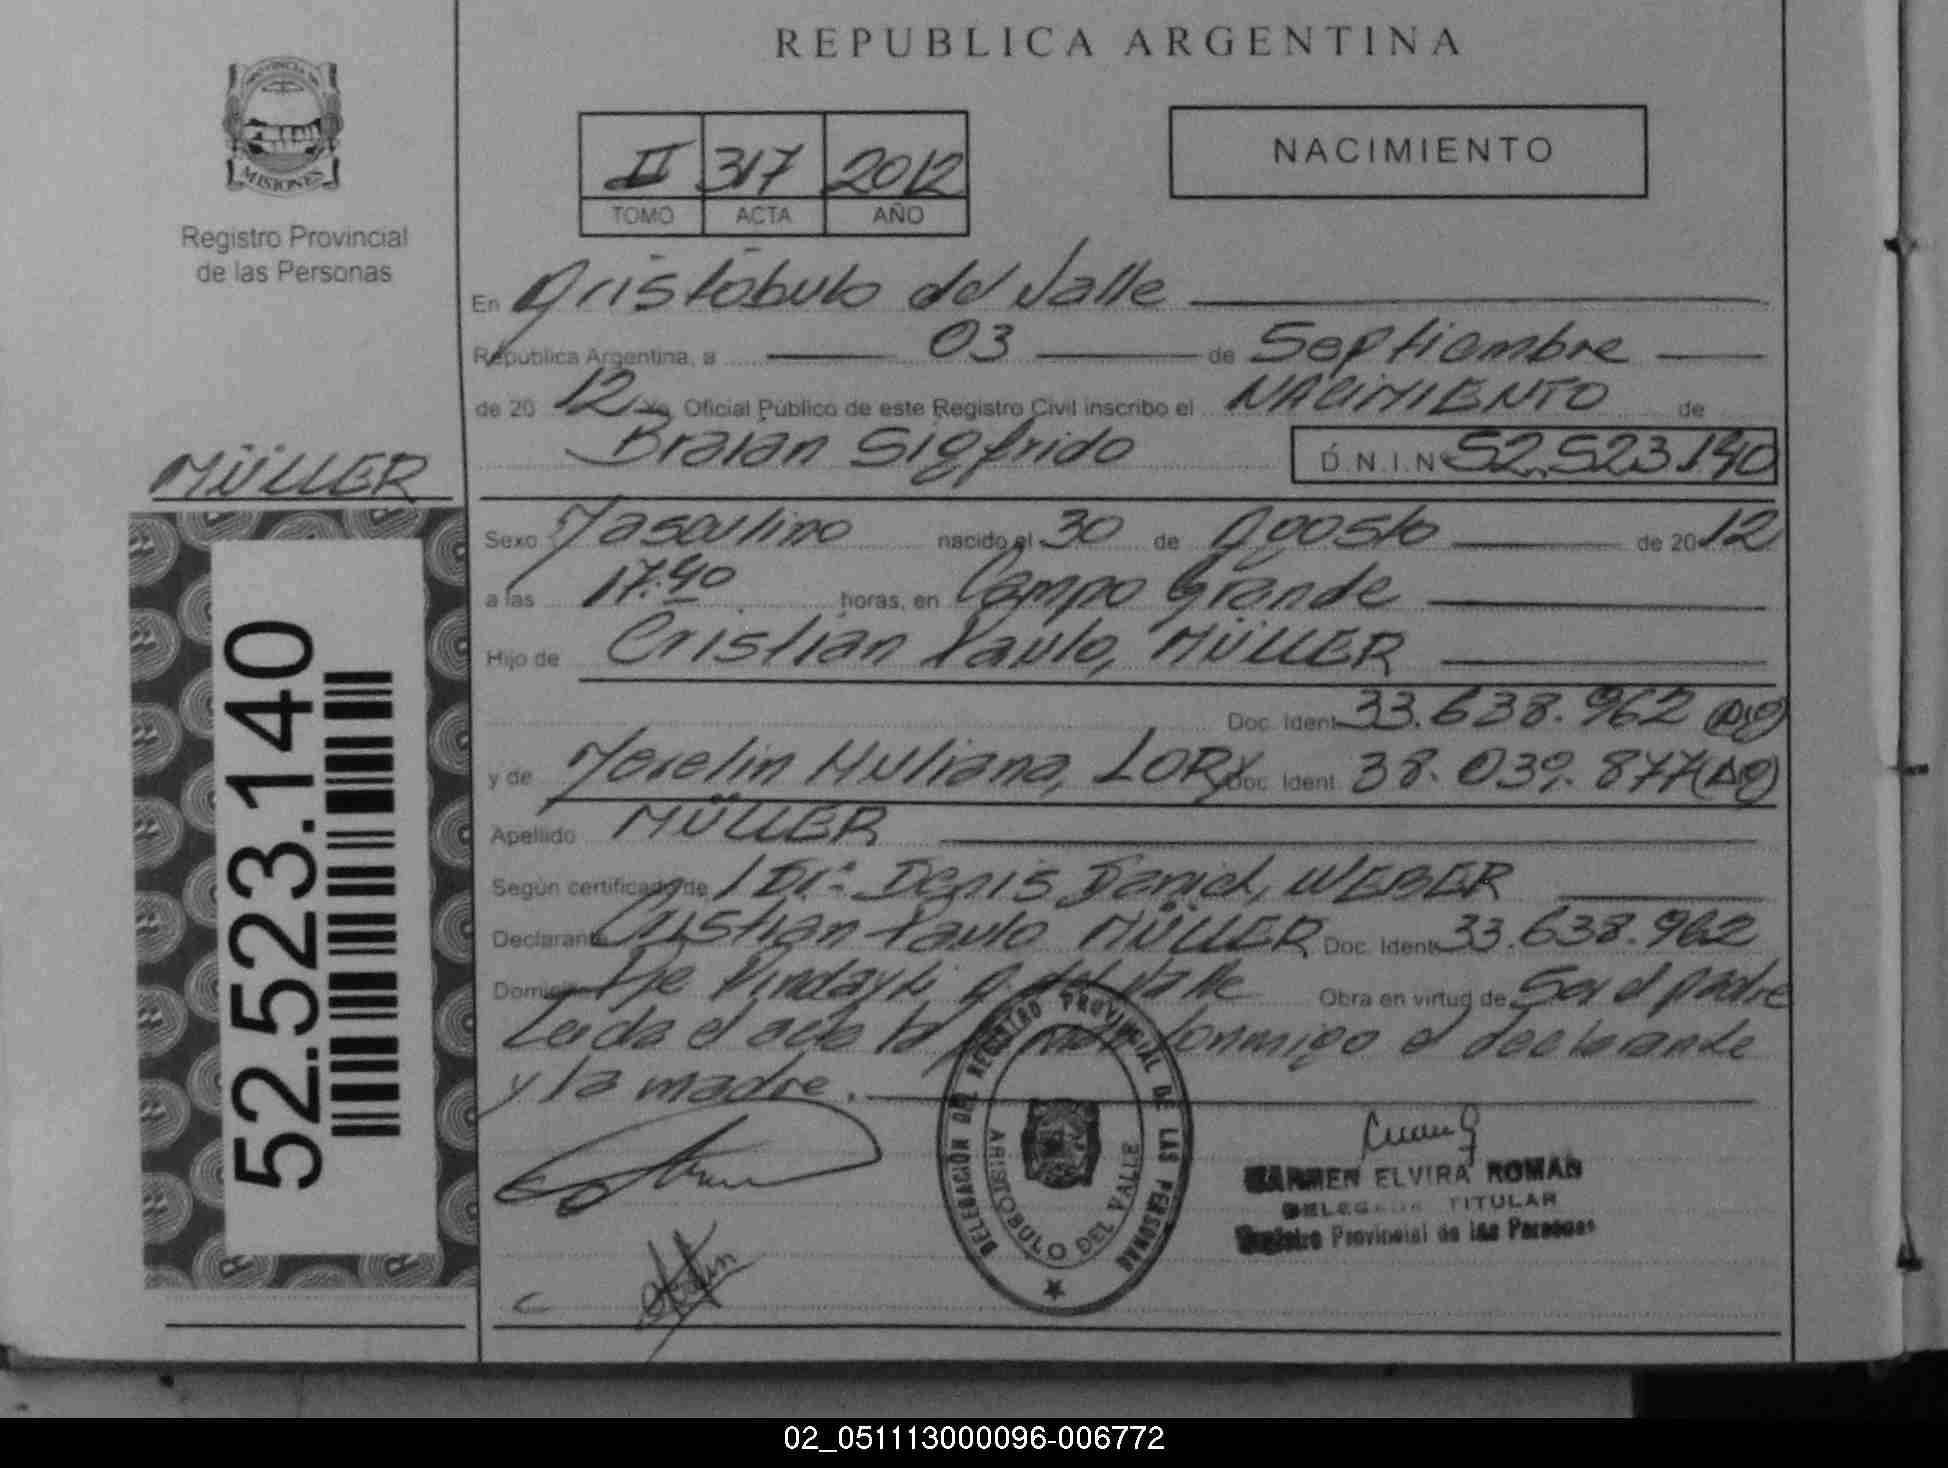 REPUBLICA ARGENTINA
PROVINCIA DE
MISIONES
Registro Provincial
de las Personas
II 317 2012
TOMO ACTA AÑO
NACIMIENTO
En Aristóbulo del Valle
República Argentina, a 03 de Septiembre
de 20 12 Yo, Oficial Público de este Registro Civil inscribo el NACIMIENTO de
Braian Sigfrido D.N.I.Nº 52.523.140
MÜLLER
Sexo Masculino nacido el 30 de Agosto de 20 12
a las 17:40 horas, en Campo Grande
Hijo de Cristian Paulo, MÜLLER
Doc. Ident. 33.638.962
y de Merelin Huliana, LORX Doc. Ident. 38.039.877
Apellido MÜLLER
Según certificado de / Dr. Denis Daniel, WEBER
Declarante Cristian Paulo MÜLLER Doc. Ident. 33.638.962
Domicilio Pje Pindayti A. del Valle Obra en virtud de Ser el padre
Leida el acta la conmigo el declarante
y la madre.
52.523.140
DELEGACIÓN DEL REGISTRO PROVINCIAL DE LAS PERSONAS
ARISTOBULO DEL VALLE
CARMEN ELVIRA ROMAN
DELEGADA TITULAR
Registro Provincial de las Personas
02_051113000096-006772